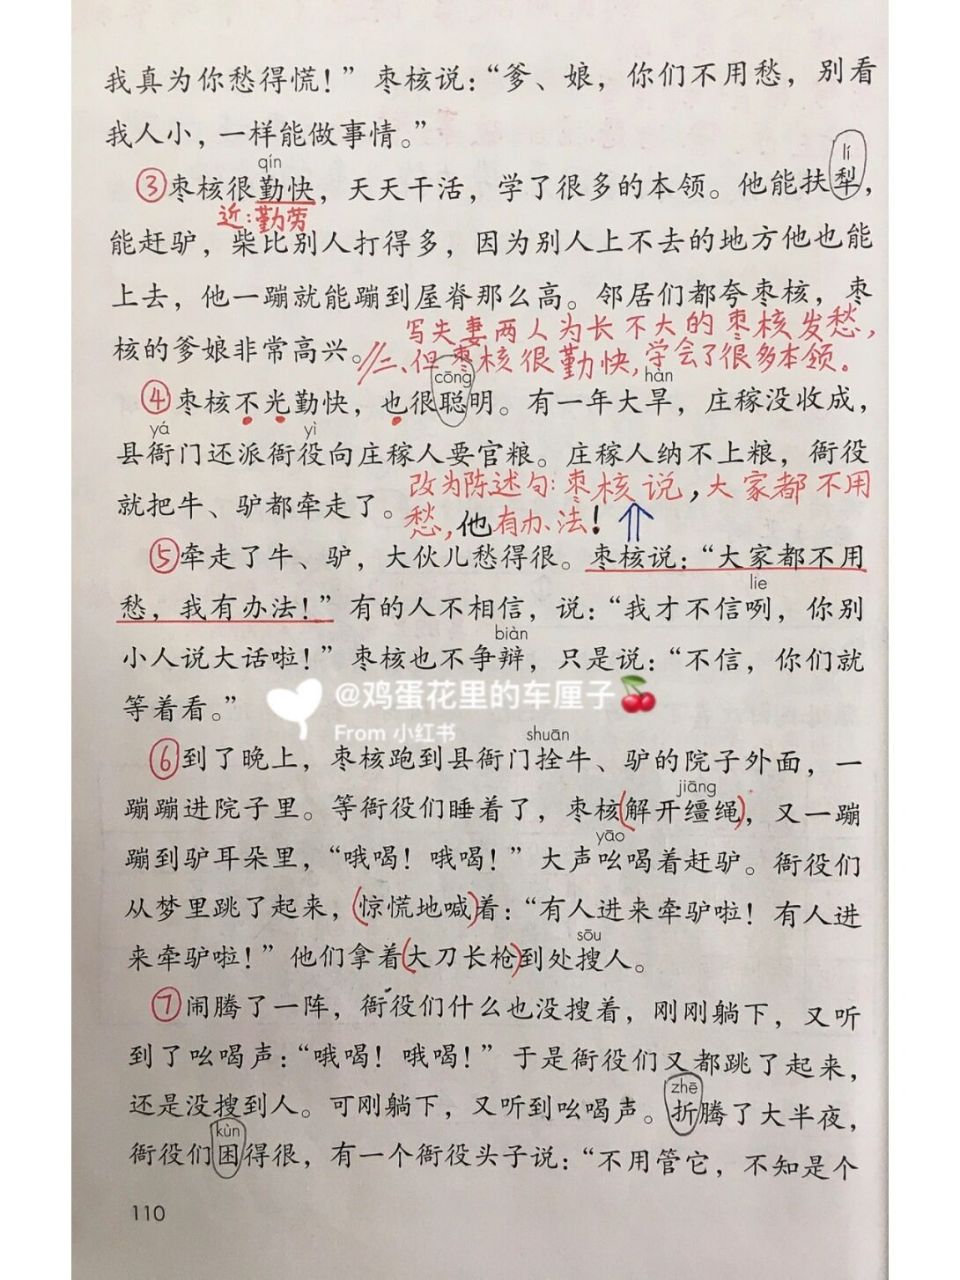 我真为你愁得慌！”枣核说：“爹、娘，你们不用愁，别看
我人小，一样能做事情。”
qín
lí
③枣核很勤快，天天干活，学了很多的本领。他能扶犁，
近：勤劳
能赶驴，柴比别人打得多，因为别人上不去的地方他也能
上去，他一蹦就能蹦到屋脊那么高。邻居们都夸枣核，枣
写夫妻两人为长不大的枣核发愁，
核的爹娘非常高兴。
//二、但枣核很勤快，学会了很多本领。
cōng
hàn
④枣核不光勤快，也很聪明。有一年大旱，庄稼没收成，
yá
yì
县衙门还派衙役向庄稼人要官粮。庄稼人纳不上粮，衙役
改为陈述句：枣核说，大家都不用
就把牛、驴都牵走了。
愁，他有办法！
⑤牵走了牛、驴，大伙儿愁得很。枣核说：“大家都不用
lie
愁，我有办法！”有的人不相信，说：“我才不信咧，你别
biàn
小人说大话啦！”枣核也不争辩，只是说：“不信，你们就
等着看。”
@鸡蛋花里的车厘子🍒
From 小红书
shuān
⑥到了晚上，枣核跑到县衙门拴牛、驴的院子外面，一
jiāng
蹦蹦进院子里。等衙役们睡着了，枣核(解开缰绳)，又一蹦
yāo
蹦到驴耳朵里，“哦喝！哦喝！”大声吆喝着赶驴。衙役们
从梦里跳了起来，(惊慌地喊)着：“有人进来牵驴啦！有人进
sōu
来牵驴啦！”他们拿着(大刀长枪)到处搜人。
⑦闹腾了一阵，衙役们什么也没搜着，刚刚躺下，又听
到了吆喝声：“哦喝！哦喝！”于是衙役们又都跳了起来，
zhē
还是没搜到人。可刚躺下，又听到吆喝声。折腾了大半夜，
kùn
衙役们困得很，有一个衙役头子说：“不用管它，不知是个
110